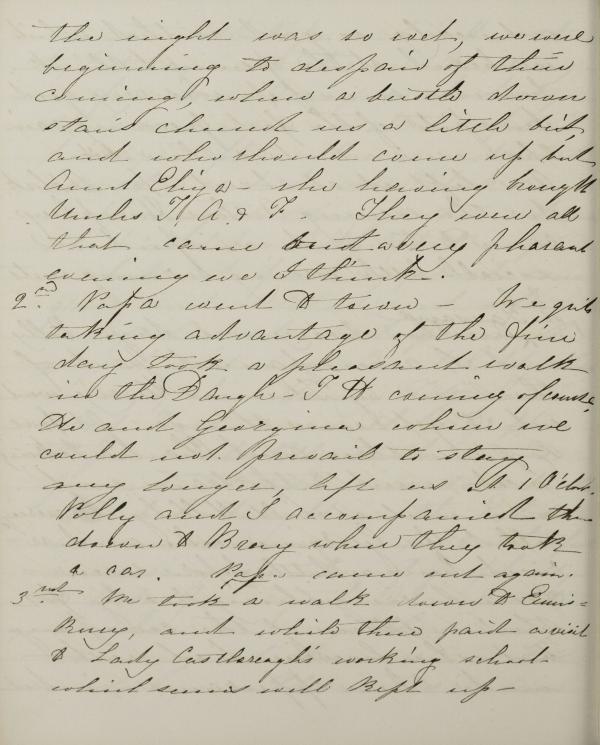 the night was so wet, we were
beginning to despair of their
coming, when a bustle down
stairs cheered us a little bit,
and who should come up but
Aunt Eliza - she having brought
Uncles T. A. & F. They were all
that came but a very pleasant
evening we I think.
2nd. Papa went to town - We girls
taking advantage of the fine
day took a pleasant walk
in the Dargle - T H coming of course,
He and Georgina whom we
could not prevail to stay
any longer, left us at 1 O'clock.
Polly and I accompanied them
down to Bray where they took
a car. Papa came out again.
3rd. We took a walk down to Ennis-
kerry, and while there paid a visit
to Lady Castlereagh's working school
which seems well kept up -